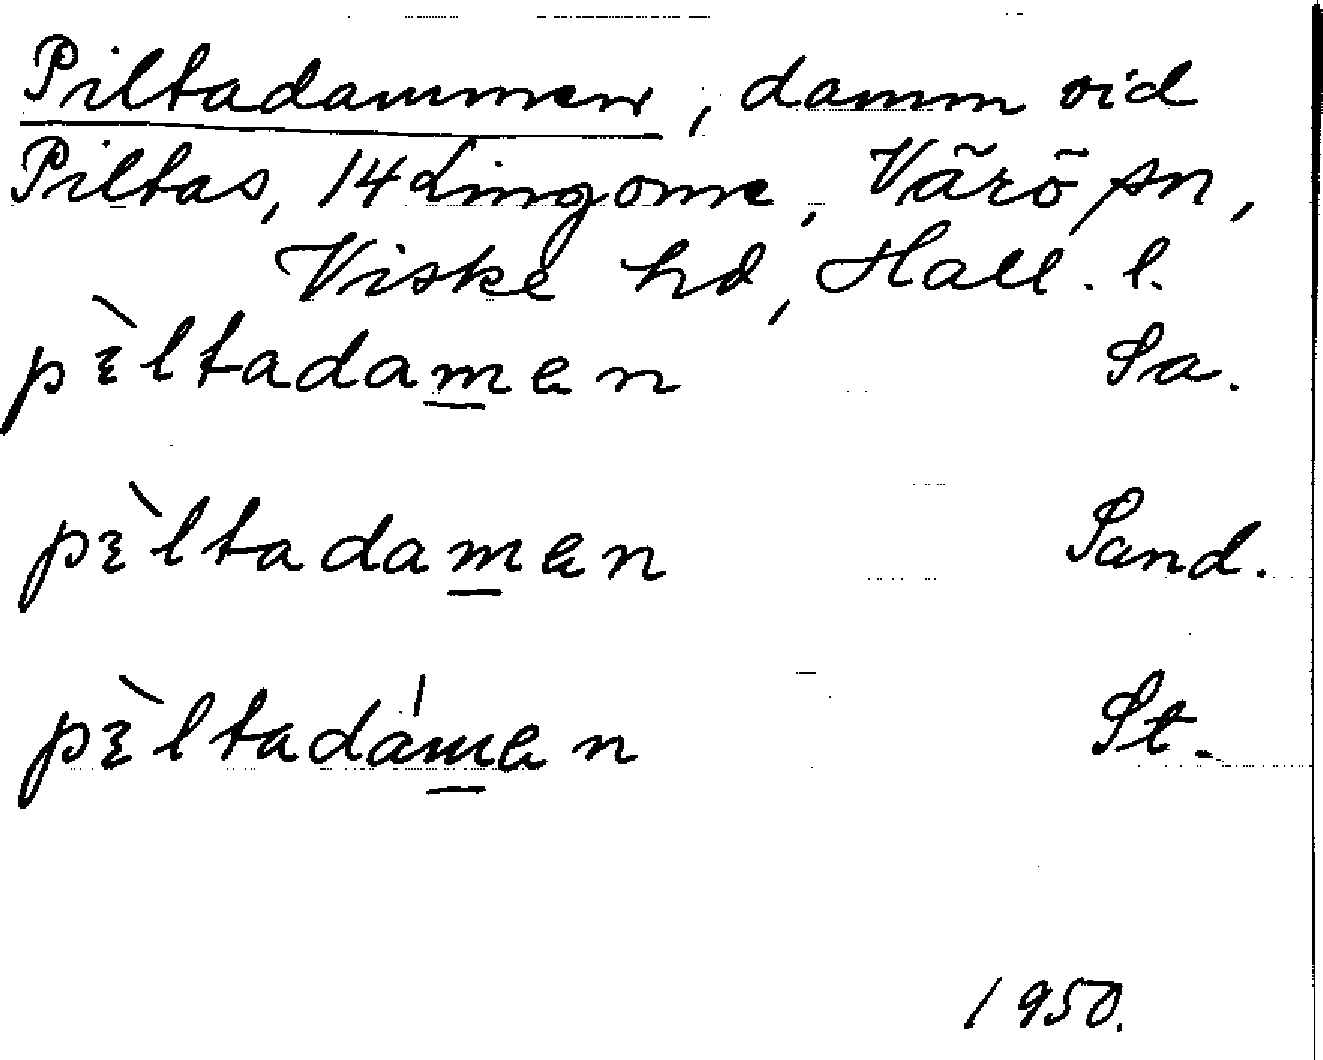 Piltadammen, damm vid
Piltas, 14 Lingome, Värö sn,
Viske hd, Hall. l.
pɛ̀ltadam̲en Sa.
pɛ̀ltadam̲en Sand.
pɛ̀ltadám̲en St.
1950.